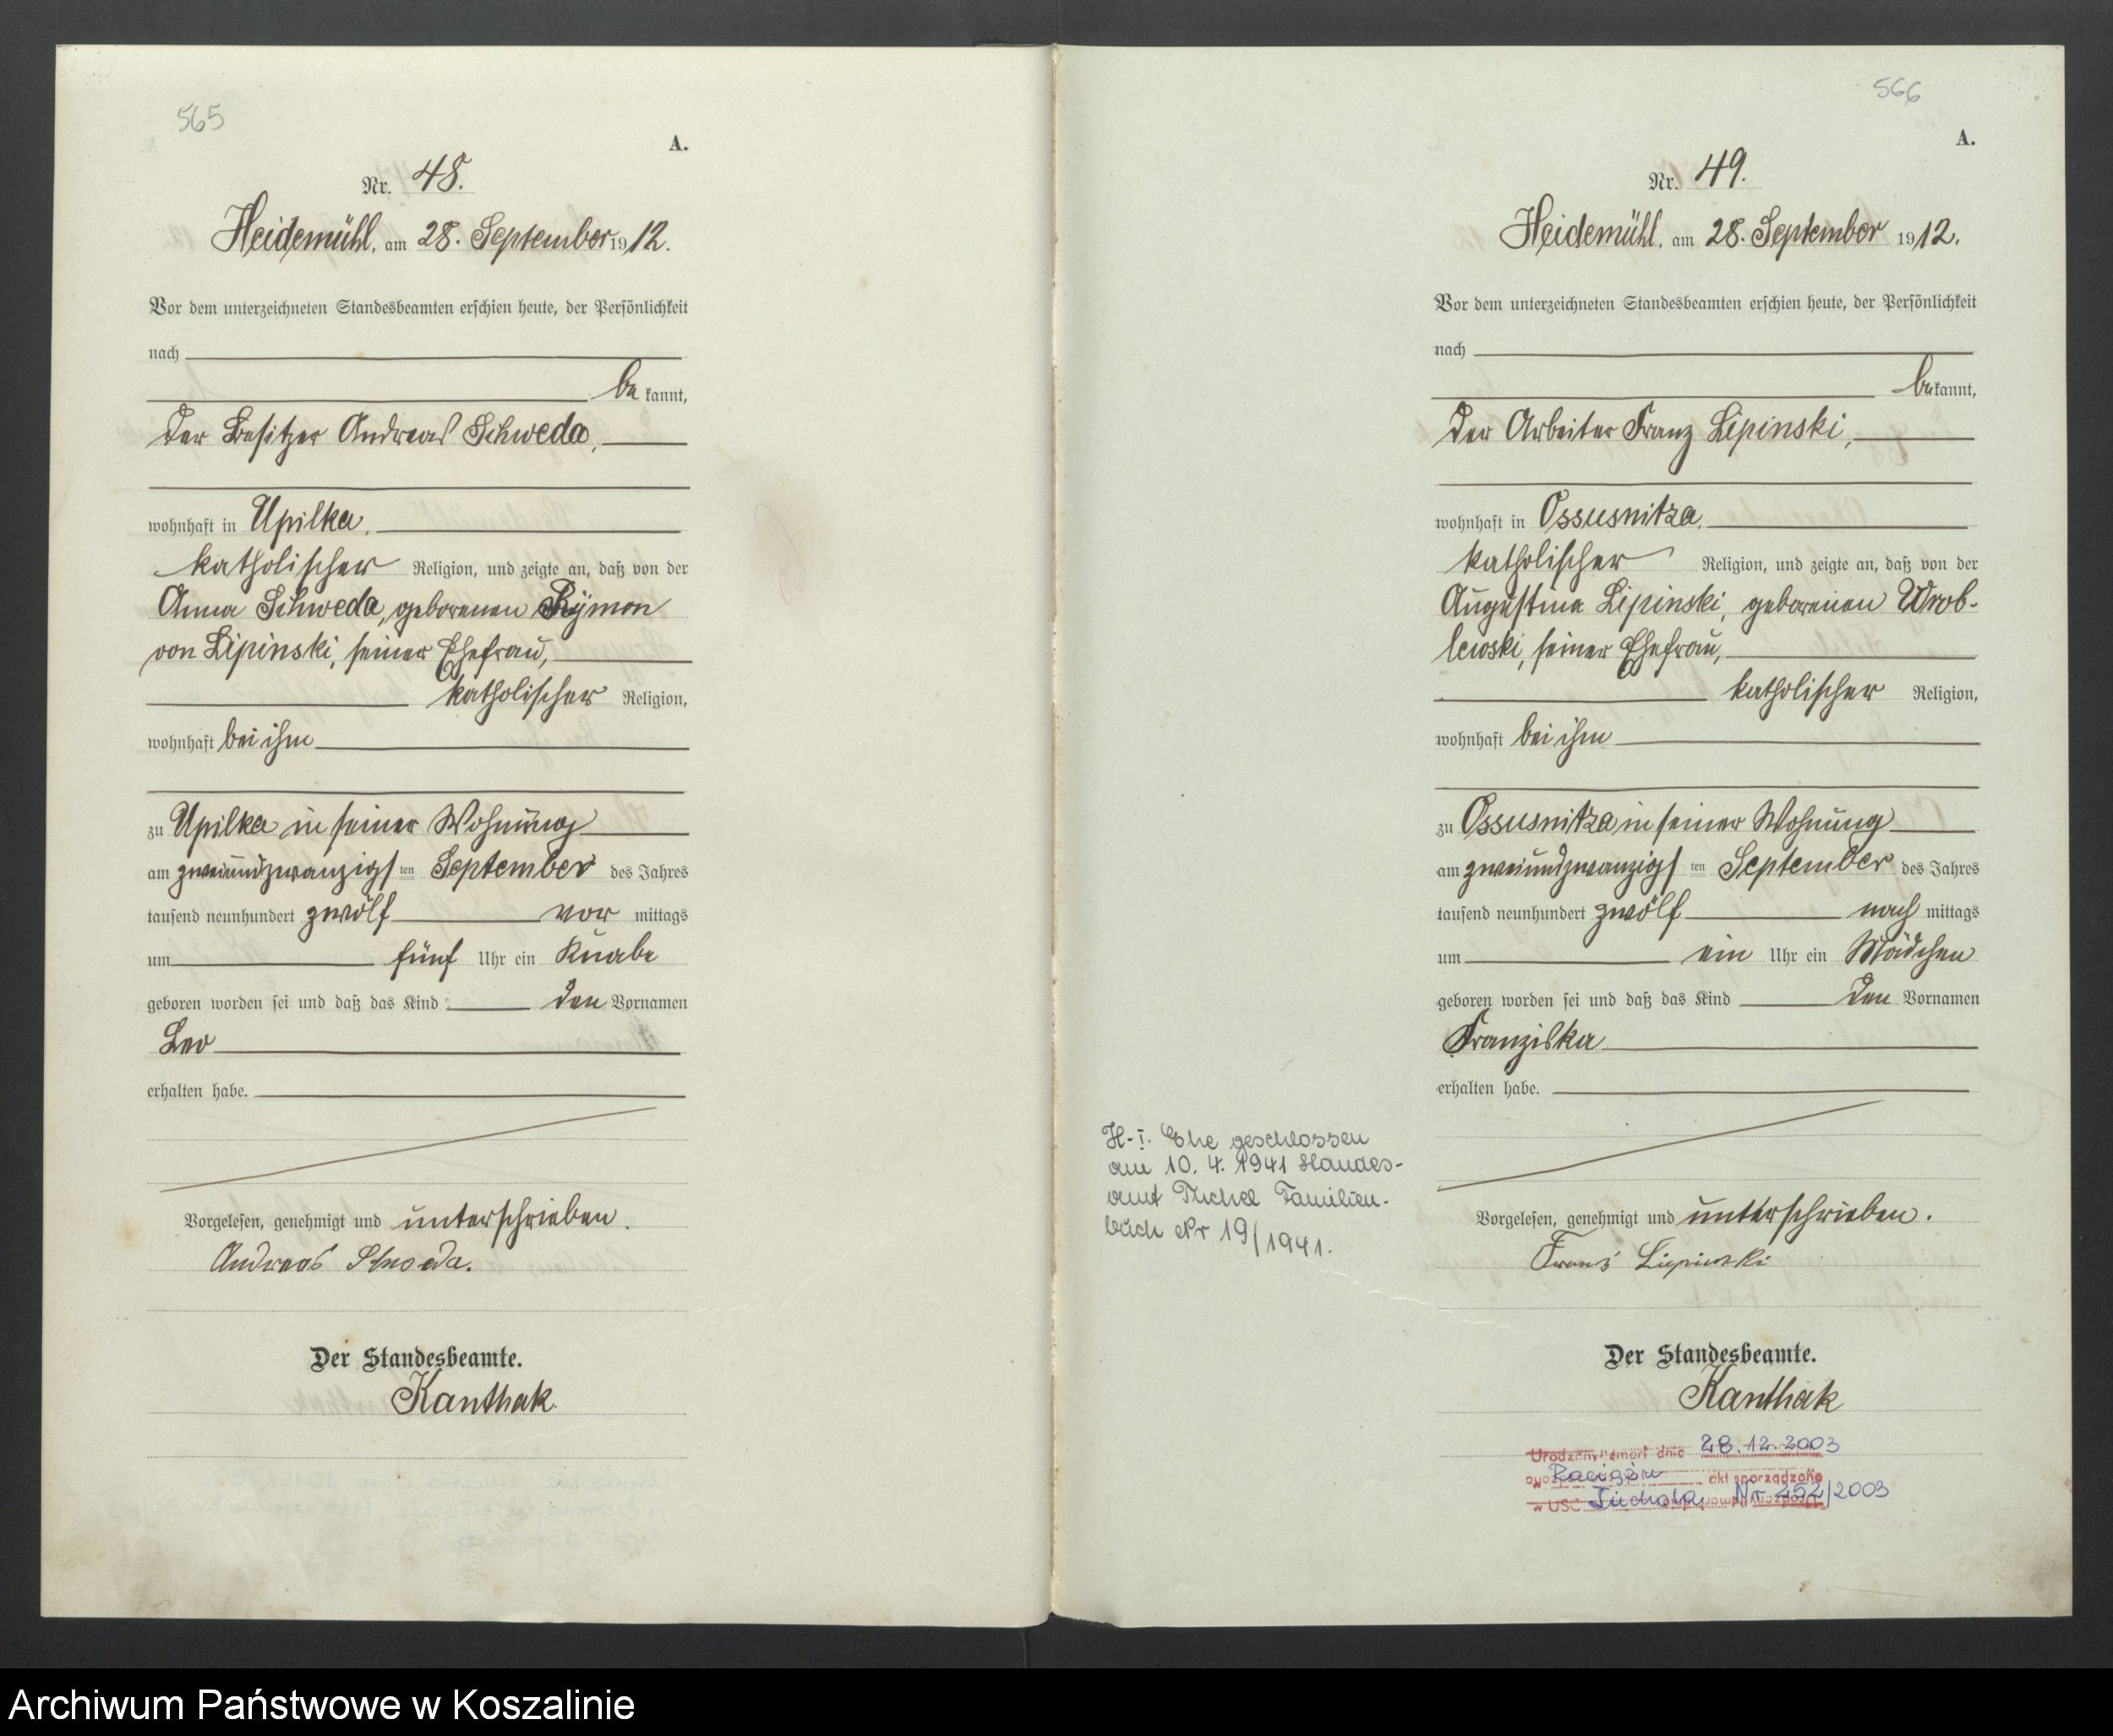 565
A.
Nr. 48.
Heidemühl, am 28. September 1912.
Vor dem unterzeichneten Standesbeamten erschien heute, der Persönlichkeit
nach
be kannt,
der Besitzer Andreas Schweda,
wohnhaft in Upilka,
katholischer Religion, und zeigte an, daß von der
Anna Schweda, geborenen Rymon
von Lipinski, seiner Ehefrau,
katholischer Religion,
wohnhaft bei ihm
zu Upilka in seiner Wohnung
am zweiundzwanzigsten September des Jahres
tausend neunhundert zwölf vor mittags
um fünf Uhr ein Knabe
geboren worden sei und daß das Kind den Vornamen
Leo
erhalten habe.
Vorgelesen, genehmigt und unterschrieben.
Andreas
Der Standesbeamte.
Kanthak
566
A.
Nr. 49.
Heidemühl, am 28. September 1912.
Vor dem unterzeichneten Standesbeamten erschien heute, der Persönlichkeit
nach
bekannt,
der Arbeiter Franz Lipinski,
wohnhaft in Ossusnitza,
katholischer Religion, und zeigte an, daß von der
Augustina Lipinski, geborenen Wrob-
lewski, seiner Ehefrau,
katholischer Religion,
wohnhaft bei ihm
zu Ossusnitza in seiner Wohnung
am zweiundzwanzigsten September des Jahres
tausend neunhundert zwölf nach mittags
um ein Uhr ein Mädchen
geboren worden sei und daß das Kind den Vornamen
Franziska
erhalten habe.
H-I. Ehe geschlossen
am 10. 4. 1941 Standes-
amt Tuchel Familien-
buch Nr 19/1941.
Vorgelesen, genehmigt und unterschrieben.
Franz Lipinski
Der Standesbeamte.
Kanthak
zmarł dnia 28.12.2003
akt sporządzono
w USC Tuchola Nr 252/2003
Archiwum Państwowe w Koszalinie